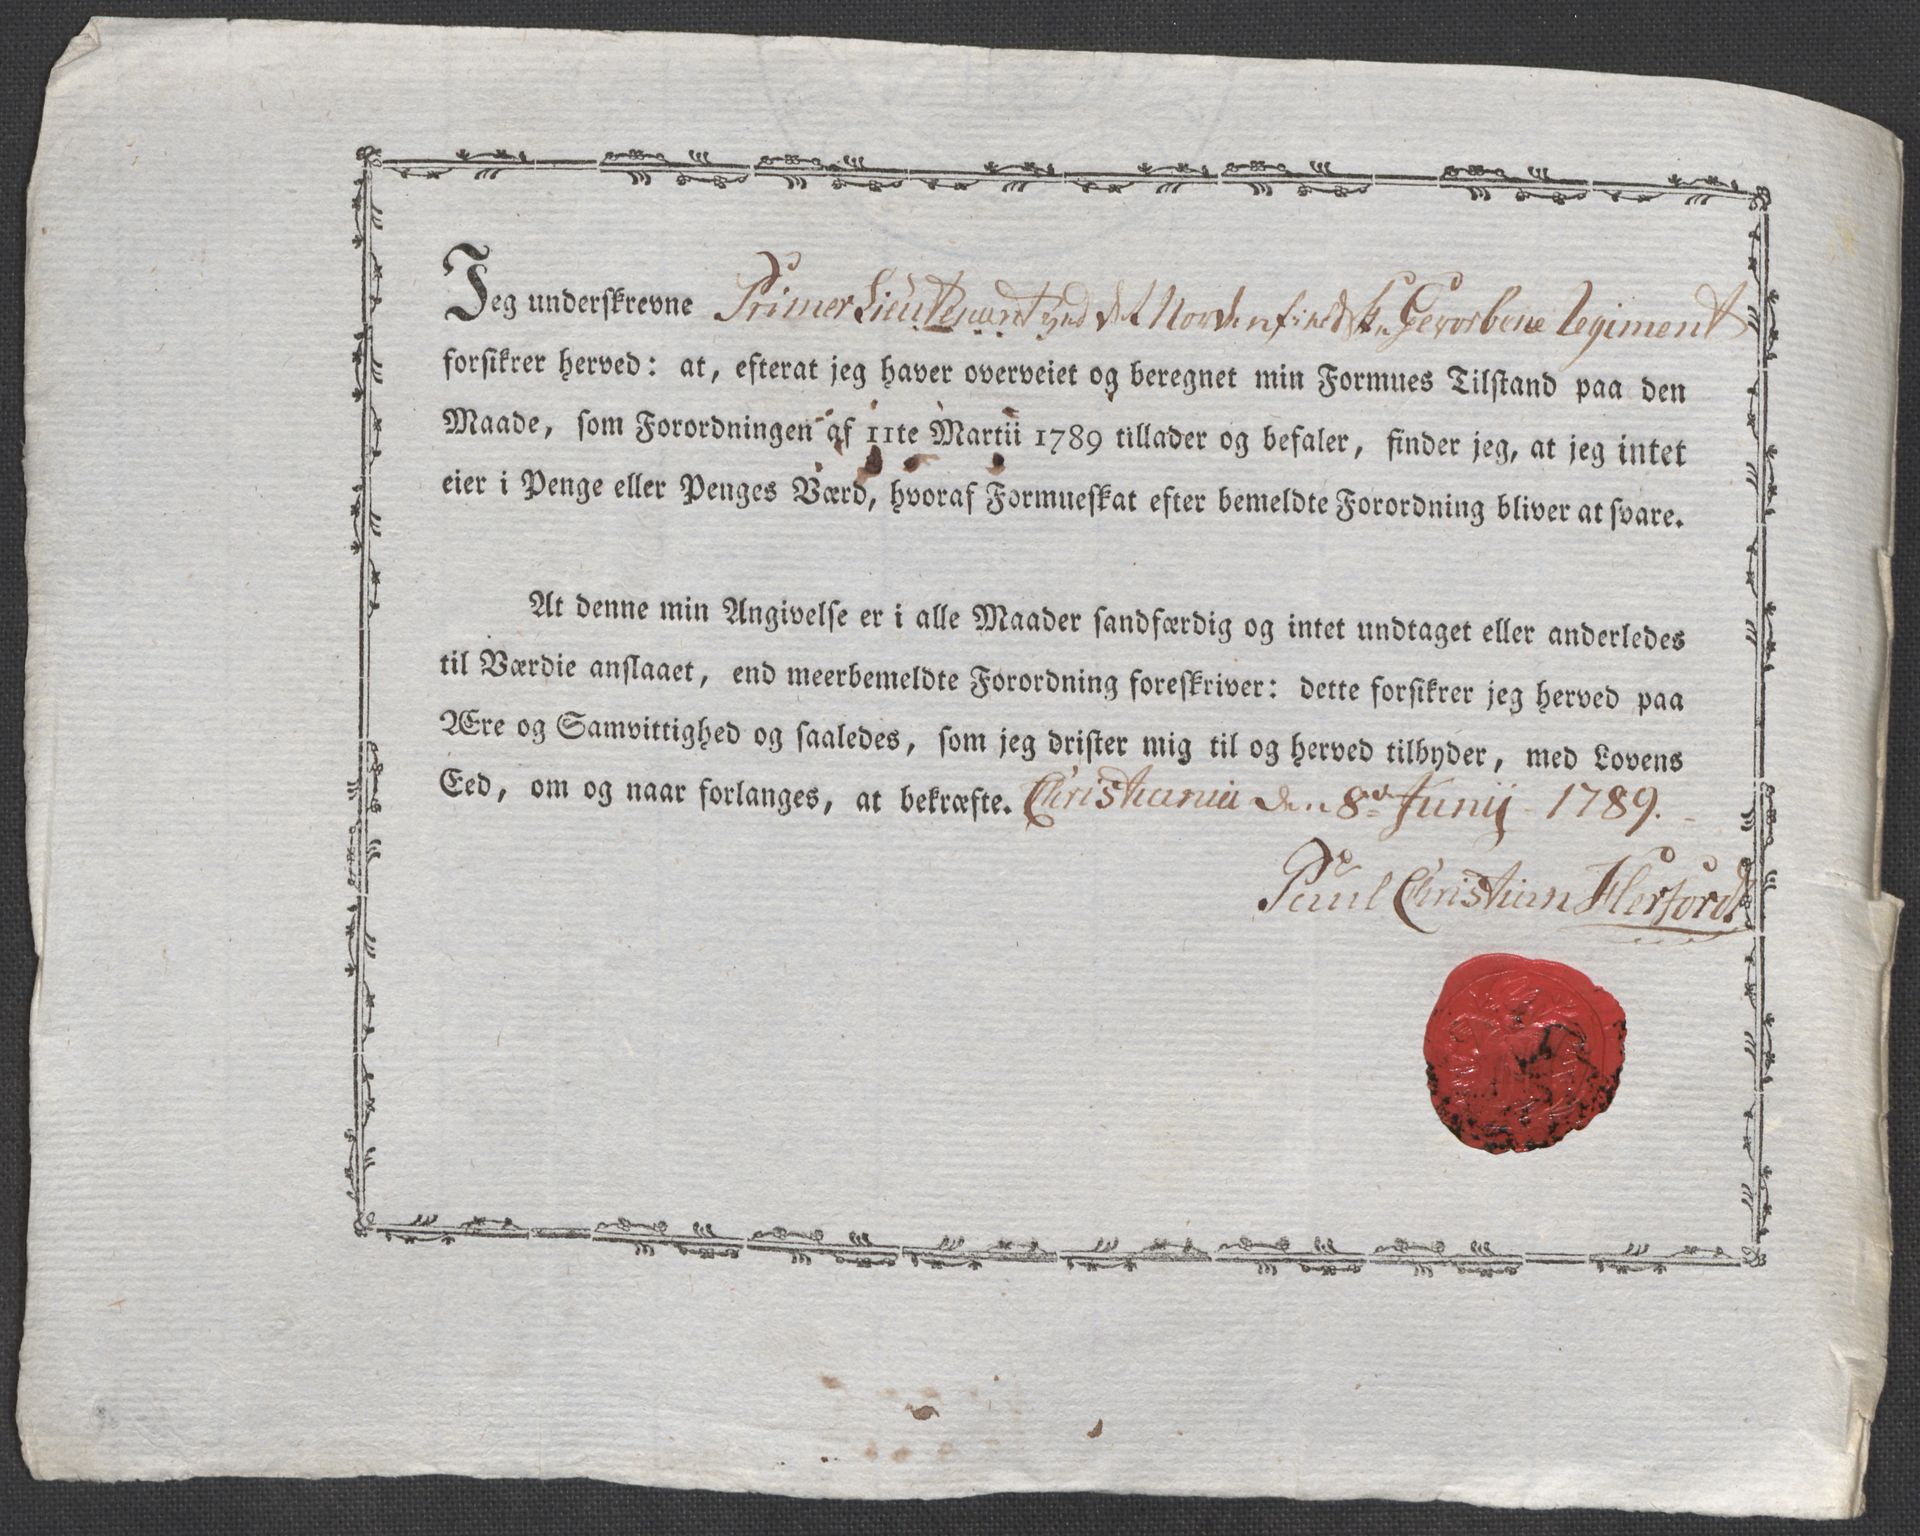 Jeg underskrevne Primer Lieutenant ved det Nordenfieldske Gevorbene Regiment
forsikrer herved: at, efterat jeg haver overveiet og beregnet min Formues Tilstand paa den
Maade, som Forordningen af 11te Martii 1789 tillader og befaler, finder jeg, at jeg intet
eier i Penge eller Penges Værd, hvoraf Formueskat efter bemeldte Forordning bliver at svare.
At denne min Angivelse er i alle Maader sandfærdig og intet undtaget eller anderledes
til Værdie anslaaet, end meerbemeldte Forordning foreskriver: dette forsikrer jeg herved paa
Ære og Samvittighed og saaledes, som jeg drister mig til og herved tilbyder, med Lovens
Eed, om og naar forlanges, at bekræfte. Christiania den 8de Junij 1789.
Paul Christian Herfordt